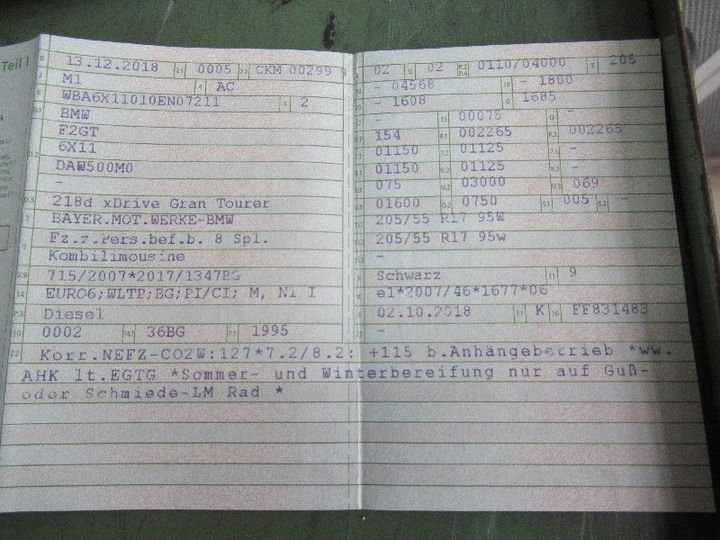 Teil I
B 13.12.2018 2.1 0005 2.2 CKM 00299 9
J M1 4 AC
E WBA6X11010EN07211 3 2
BMW
F2GT
6X11
D.2 DAW500M0
-
D.3 218d xDrive Gran Tourer
2 BAYER.MOT.WERKE-BMW
5 Fz.z.Pers.bef.b. 8 Spl.
Kombilimousine
V.9 715/2007*2017/1347BG
14 EURO6;WLTP;BG;PI/CI; M, N1 I
P.3 Diesel
10 0002 14.1 36BG P.1 1995
22 Korr.NEFZ-CO2W:127*7.2/8.2: +115 b.Anhängebetrieb *ww.
AHK lt.EGTG *Sommer- und Winterbereifung nur auf Guß-
oder Schmiede-LM Rad *
02 9 02 P.2 P.4 0110/04000 T 205
- 04568 19 - 1800
- 1608 G 1685
- 13 00075 Q -
154 002265 002265
01150 01125 -
01150 01125 -
075 03000 069
01600 0750 S.1 005 S.2 -
205/55 R17 95W
205/55 R17 95W
-
Schwarz 11 9
e1*2007/46*1677*06
02.10.2018 17 K 16 FF831483
-